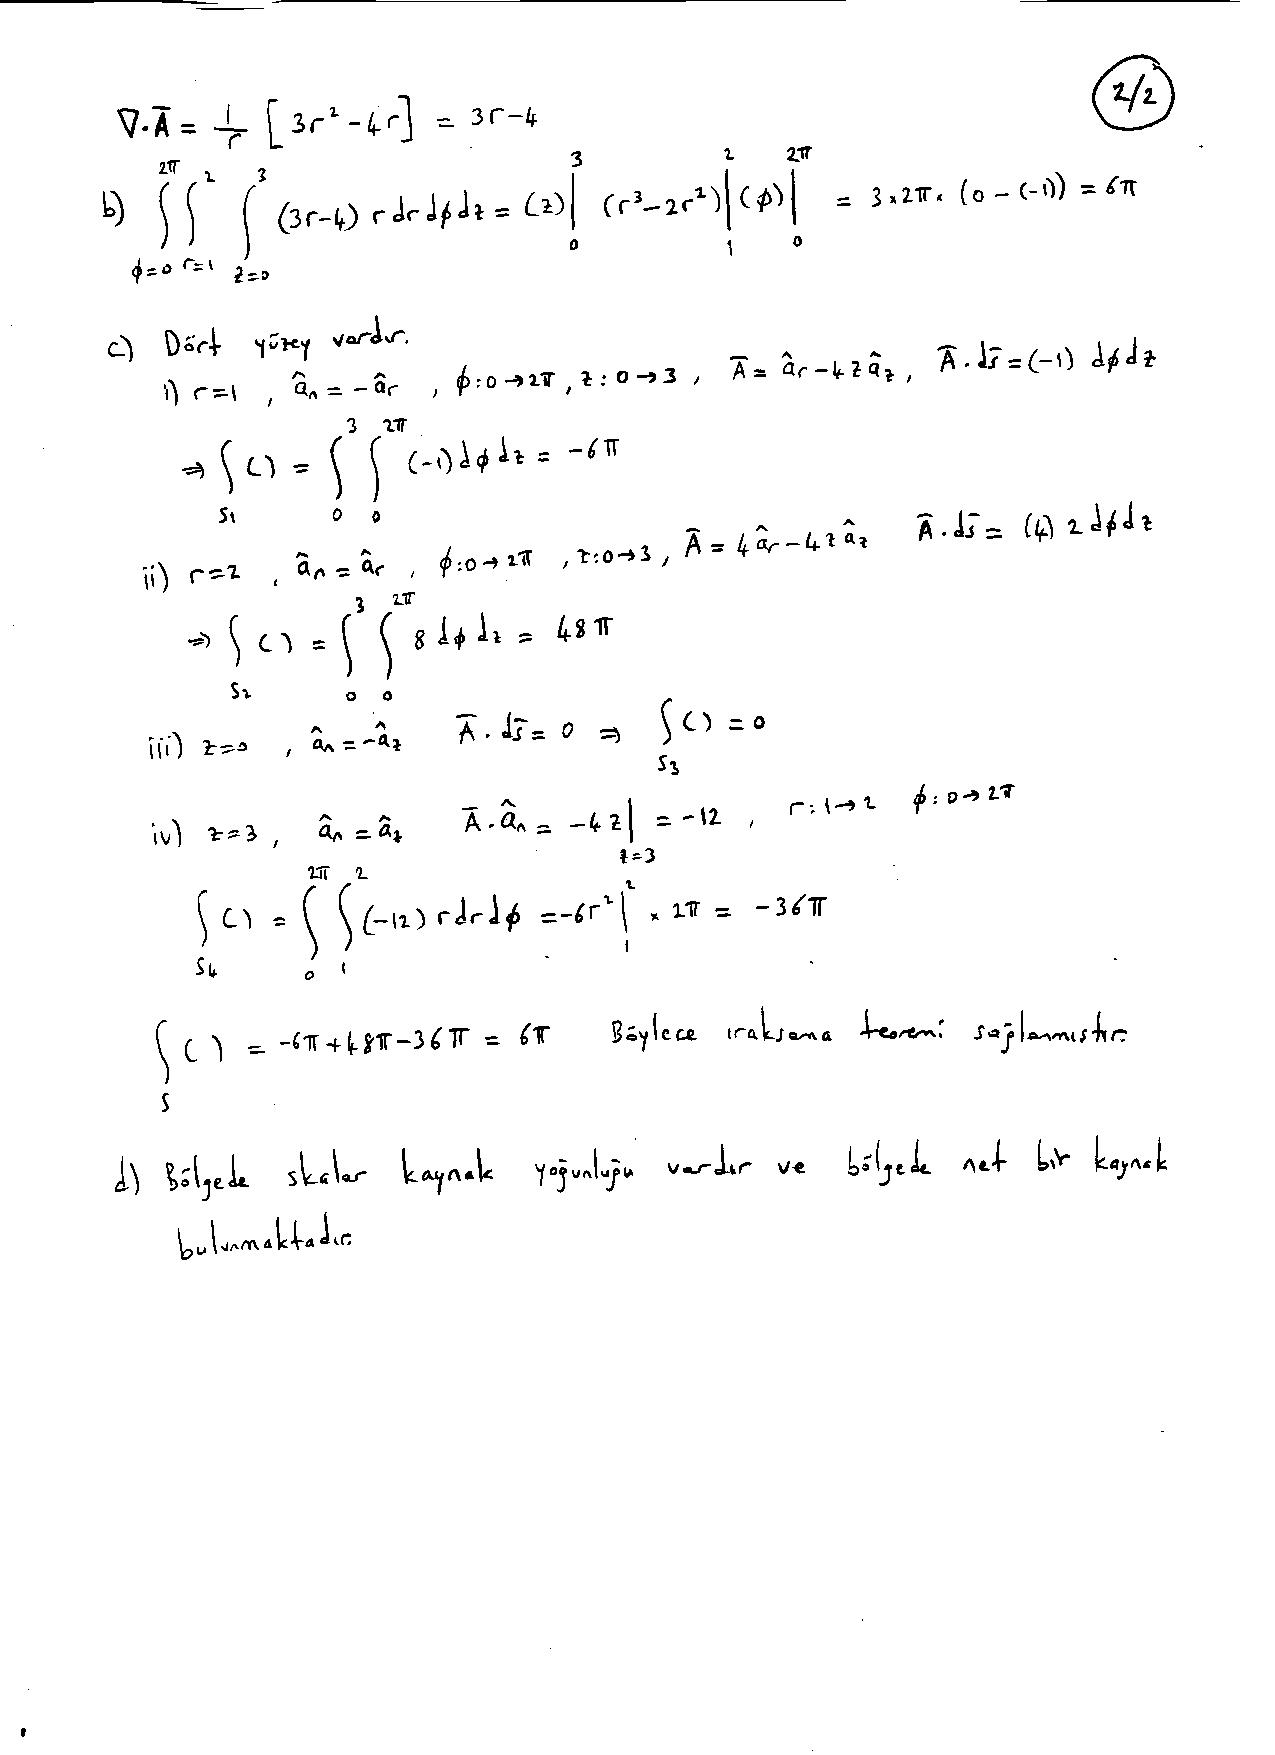 2/2
∇·Ā = 1/r [3r² - 4r] = 3r-4
b) ∫_{φ=0}^{2π} ∫_{r=1}^{2} ∫_{z=0}^{3} (3r-4) r dr dφ dz = (z)|_0^3 (r³-2r²)|_1^2 (φ)|_0^{2π} = 3×2π×(0-(-1)) = 6π
c) Dört yüzey vardır.
i) r=1, â_n = -â_r, φ:0→2π, z:0→3, Ā = â_r-4zâ_z, Ā·ds̄ = (-1) dφdz
⇒ ∫_{S1} ( ) = ∫_0^3 ∫_0^{2π} (-1) dφ dz = -6π
ii) r=2, â_n = â_r, φ:0→2π, z:0→3, Ā = 4â_r-4zâ_z Ā·ds̄ = (4) 2 dφdz
⇒ ∫_{S2} ( ) = ∫_0^3 ∫_0^{2π} 8 dφ dz = 48π
iii) z=0, â_n = -â_z Ā·ds̄ = 0 ⇒ ∫_{S3} ( ) = 0
iv) z=3, â_n = â_z Ā·â_n = -4z|_{z=3} = -12, r:1→2 φ:0→2π
∫_{S4} ( ) = ∫_0^{2π} ∫_1^2 (-12) r dr dφ = -6r²|_1^2 × 2π = -36π
∫_S ( ) = -6π+48π-36π = 6π Böylece ıraksama teoremi sağlanmıştır.
d) Bölgede skalar kaynak yoğunluğu vardır ve bölgede net bir kaynak
bulunmaktadır.